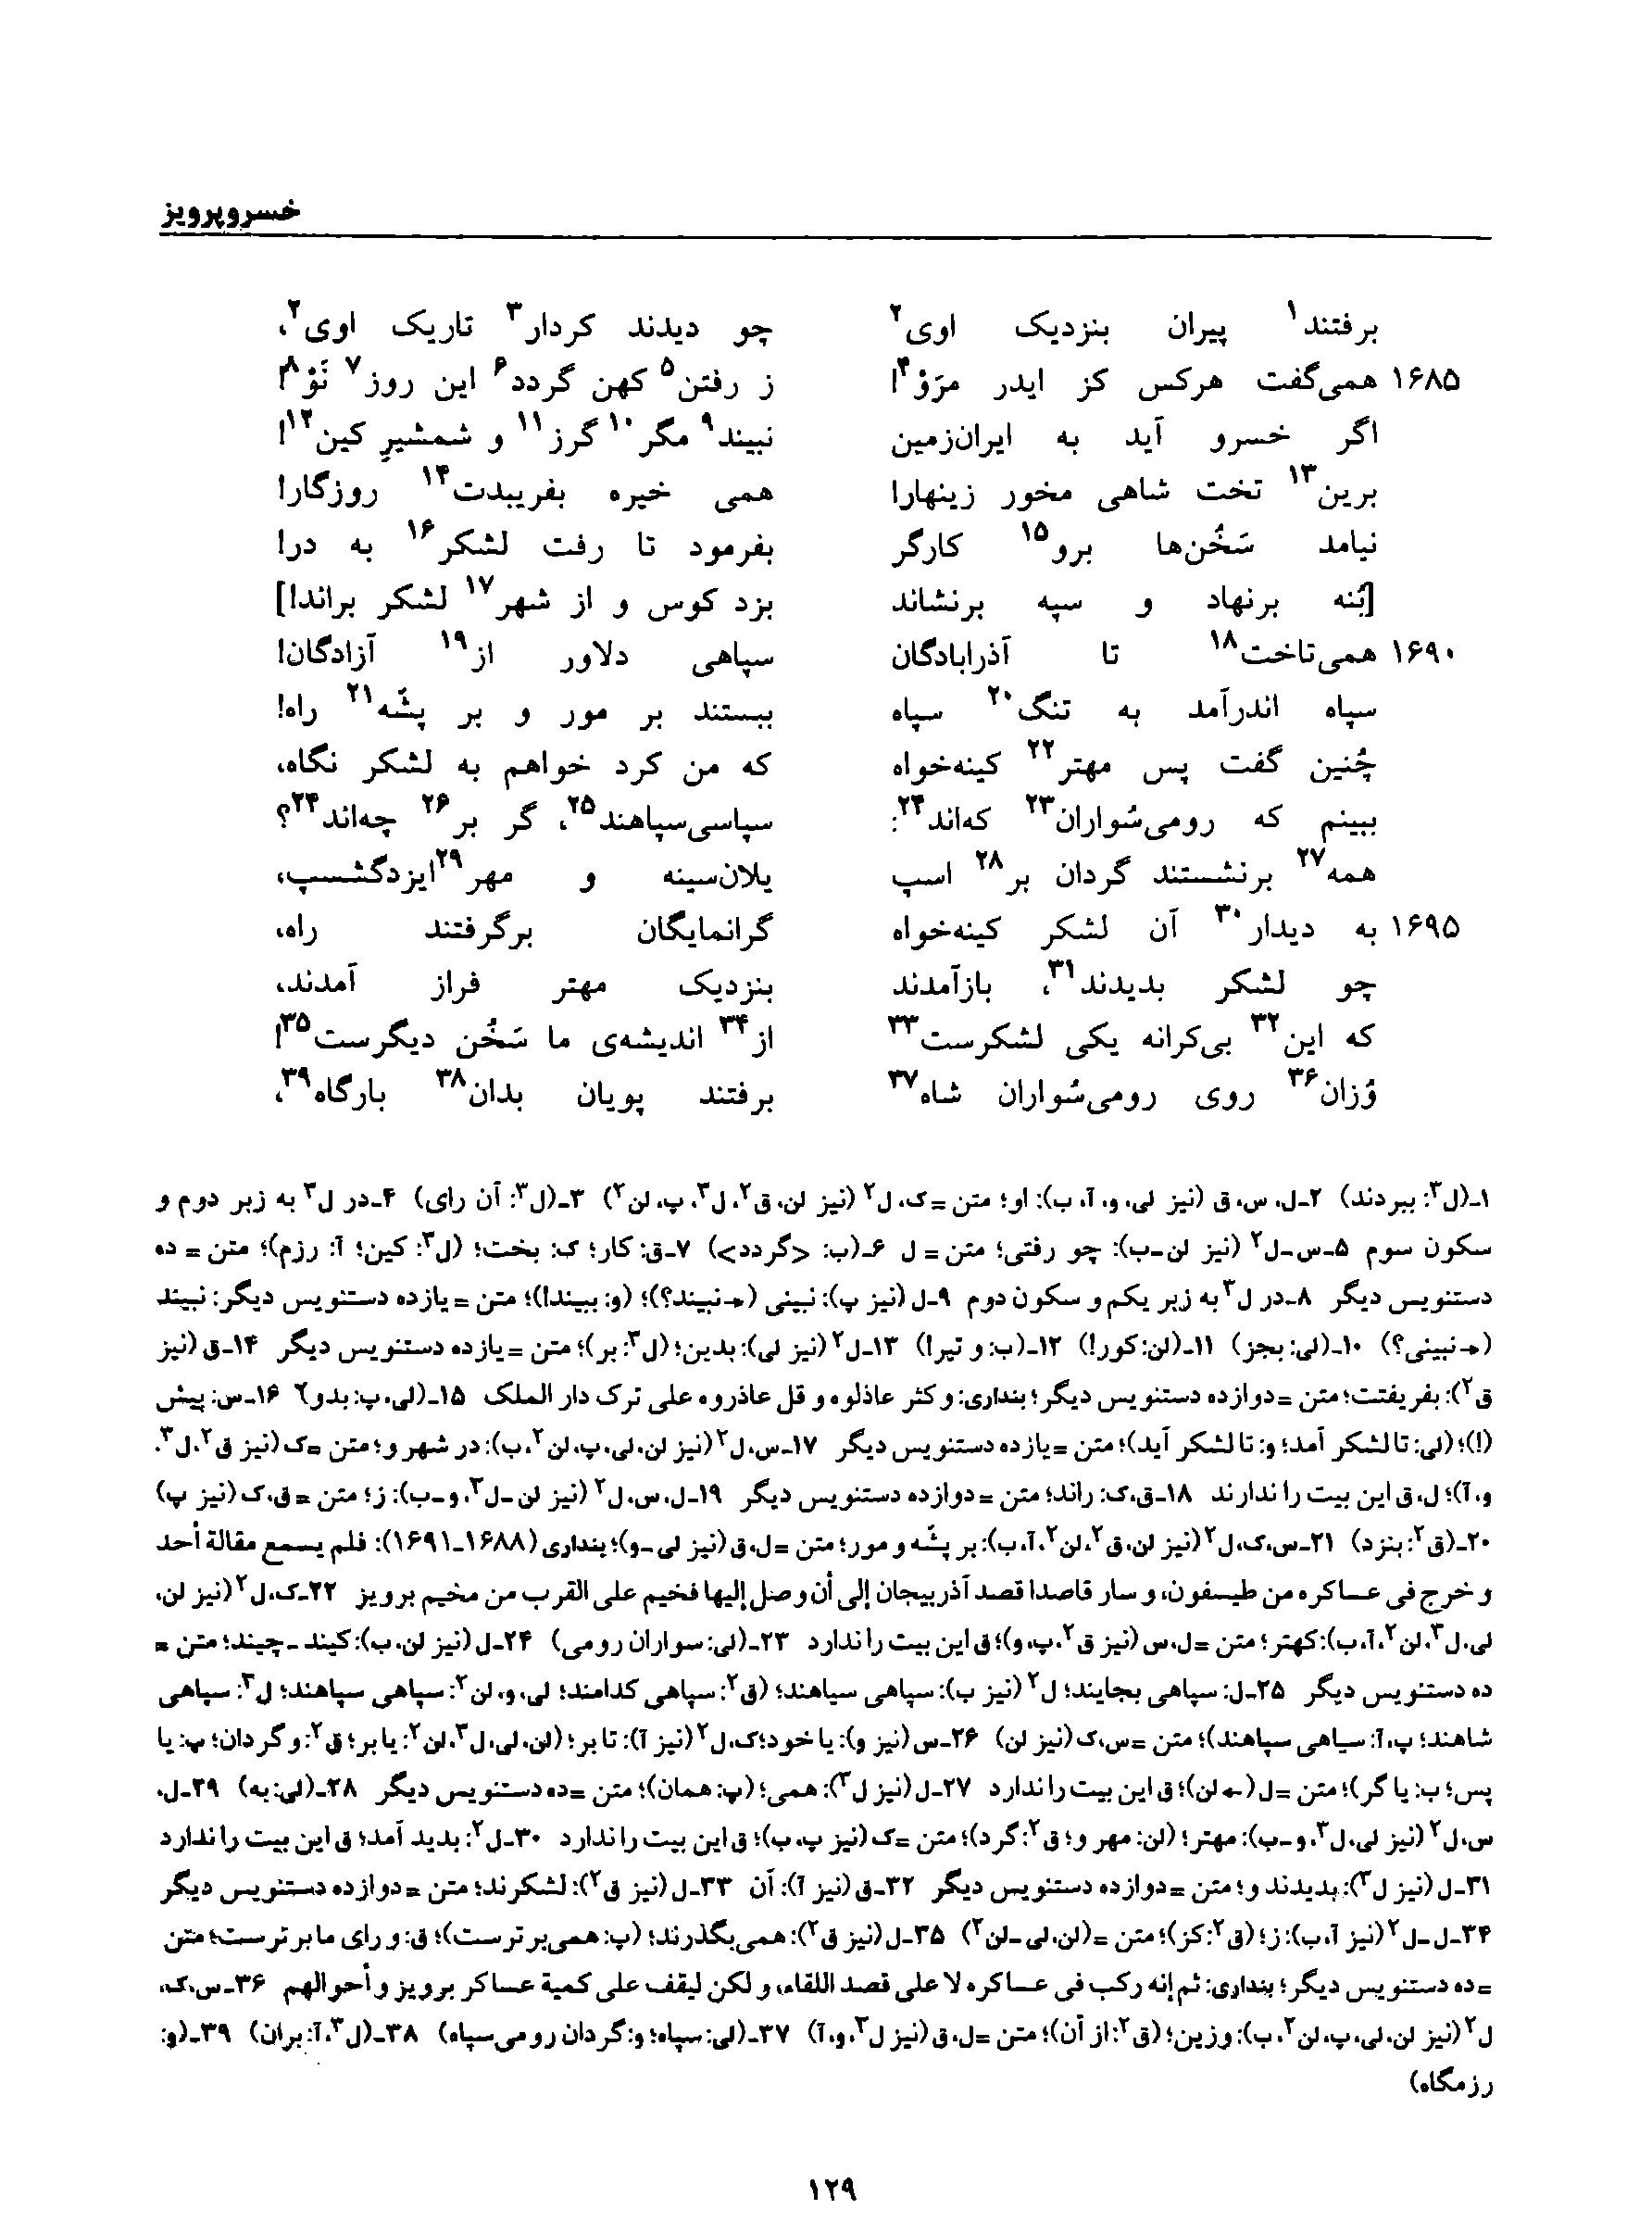 خسروپرویز
برفتند۱ پیران بنزدیک اوی۲ چو دیدند کردار۳ تاریک اوی۲،
۱۶۸۵ همی‌گفت هرکس کز ایدر مرَوْ۴! ز رفتن۵ کهن گردد۶ این روز۷ نَوْ۸!
اگر خسرو آید به ایران‌زمین نبیند۹ مگر۱۰ گرز۱۱ و شمشیرِ کین۱۲!
برین۱۳ تخت شاهی مخور زینهار! همی خیره بفریبدت۱۴ روزگار!
نیامد سَخُن‌ها برو۱۵ کارگر بفرمود تا رفت لشکر۱۶ به در!
[بُنه برنهاد و سپه برنشاند بزد کوس و از شهر۱۷ لشکر براند!]
۱۶۹۰ همی‌تاخت۱۸ تا آذرابادگان سپاهی دلاور از۱۹ آزادگان!
سپاه اندرآمد به تنگ۲۰ سپاه ببستند بر مور و بر پشّه۲۱ راه!
چُنین گفت پس مهتر۲۲ کینه‌خواه که من کرد خواهم به لشکر نگاه،
ببینم که رومی‌سُواران۲۳ که‌اند۲۴: سپاسی‌سپاهند۲۵، گر بر۲۶ چه‌اند۲۴؟
همه۲۷ برنشستند گردان بر۲۸ اسپ یلان‌سینه و مهر۲۹ایزدگشسپ،
۱۶۹۵ به دیدار۳۰ آن لشکر کینه‌خواه گرانمایگان برگرفتند راه،
چو لشکر بدیدند۳۱، بازآمدند بنزدیک مهتر فراز آمدند،
که این۳۲ بی‌کرانه یکی لشکرست۳۳ از۳۴ اندیشه‌ی ما سَخُن دیگرست۳۵!
وُزان۳۶ روی رومی‌سُواران شاه۳۷ برفتند پویان بدان۳۸ بارگاه۳۹،
۱ـ(ل۳: ببردند) ۲ـل، س، ق (نیز لی، و، آ، ب): او؛ متن =ک، ل۲ (نیز لن، ق۲، ل۳، پ، لن۲) ۳ـ(ل۳: آن رای) ۴ـدر ل۳ به زبر دوم و
سکون سوم ۵ـس-ل۲ (نیز لن-ب): چو رفتی؛ متن = ل ۶ـ(ب: <گردد>) ۷ـق: کار؛ ک: بخت؛ (ل۳: کین؛ آ: رزم)؛ متن = ده
دستنویس دیگر ۸ـدر ل۳ به زبر یکم و سکون دوم ۹ـل (نیز پ): نبینی (→نبیند؟)؛ (و: ببیند!)؛ متن = یازده دستنویس دیگر: نبیند
(→نبینی؟) ۱۰ـ(لی: بجز) ۱۱ـ(لن: کور!) ۱۲ـ(ب: و تیر!) ۱۳ـل۲ (نیز لی): بدین؛ (ل۳: بر)؛ متن = یازده دستنویس دیگر ۱۴ـق (نیز
ق۲): بفریفتت؛ متن =دوازده دستنویس دیگر؛ بنداری: وکثر عاذلوه و قل عاذروه علی ترک دار الملک ۱۵ـ(لی، پ: بدو) ۱۶ـس: پیش
(!)؛ (لی: تا لشکر آمد؛ و: تا لشکر آید)؛ متن =یازده دستنویس دیگر ۱۷ـس، ل۲ (نیز لن، لی، پ، لن۲، ب): در شهر و؛ متن =ک (نیز ق۲، ل۳،
و، آ)؛ ل، ق این بیت را ندارند ۱۸ـق، ک: راند؛ متن = دوازده دستنویس دیگر ۱۹ـل، س، ل۲ (نیز لن-ل۳، و-ب): ز؛ متن = ق، ک (نیز پ)
۲۰ـ(ق۲: بنزد) ۲۱ـس، ک، ل۲ (نیز لن، ق۲، لن۲، آ، ب): بر پشّه و مور؛ متن =ل، ق (نیز لی-و)؛ بنداری (۱۶۸۸ـ۱۶۹۱): فلم یسمع مقالة أحد
و خرج فی عساکره من طیسفون، و سار قاصدا قصد آذربیجان إلی أن وصل إلیها فخیم علی القرب من مخیم برویز ۲۲ـک، ل۲ (نیز لن،
لی، ل۳، لن۲، آ، ب): کهتر؛ متن =ل، س (نیز ق۲، پ، و)؛ ق این بیت را ندارد ۲۳ـ(لی: سواران رومی) ۲۴ـل (نیز لن، ب): کیند ـ چیند؛ متن =
ده دستنویس دیگر ۲۵ـل: سپاهی بجایند؛ ل۲ (نیز ب): سپاهی سیاهند؛ (ق۲: سپاهی کدامند؛ لی، و، لن۲: سپاهی سپاهند؛ ل۳: سپاهی
شاهند؛ پ، آ: سیاهی سپاهند)؛ متن =س، ک (نیز لن) ۲۶ـس (نیز و): یا خود؛ ک، ل۲ (نیز آ): تا بر؛ (لن، لی، ل۳، لن۲: یا بر؛ ق۲: و گردان؛ پ: یا
پس؛ ب: یا گر)؛ متن =ل (←لن)؛ ق این بیت را ندارد ۲۷ـل (نیز ل۳): همی؛ (پ: همان)؛ متن =ده دستنویس دیگر ۲۸ـ(لی: به) ۲۹ـل،
س، ل۲ (نیز لی، ل۳، و-ب): مهتر؛ (لن: مهر و؛ ق۲: گرد)؛ متن =ک (نیز پ، ب)؛ ق این بیت را ندارد ۳۰ـل۲: بدید آمد؛ ق این بیت را ندارد
۳۱ـل (نیز ل۳): بدیدند و؛ متن =دوازده دستنویس دیگر ۳۲ـق (نیز آ): آن ۳۳ـل (نیز ق۲): لشکرند؛ متن =دوازده دستنویس دیگر
۳۴ـل-ل۲ (نیز آ، ب): ز؛ (ق۲: کز)؛ متن =(لن، لی-لن۲) ۳۵ـل (نیز ق۲): همی‌بگذرند؛ (پ: همی‌برترست)؛ ق: و رای ما برترست؛ متن
=ده دستنویس دیگر؛ بنداری: ثم إنه رکب فی عساکره لا علی قصد اللقاء، و لکن لیقف علی کمیة عساکر برویز و أحوالهم ۳۶ـس، ک،
ل۲ (نیز لن، لی، پ، لن۲، ب): وزین؛ (ق۲: از آن)؛ متن =ل، ق (نیز ل۳، و، آ) ۳۷ـ(لی: سپاه؛ و: گردان رومی‌سپاه) ۳۸ـ(ل۳، آ: بران) ۳۹ـ(و:
رزمگاه)
۱۲۹